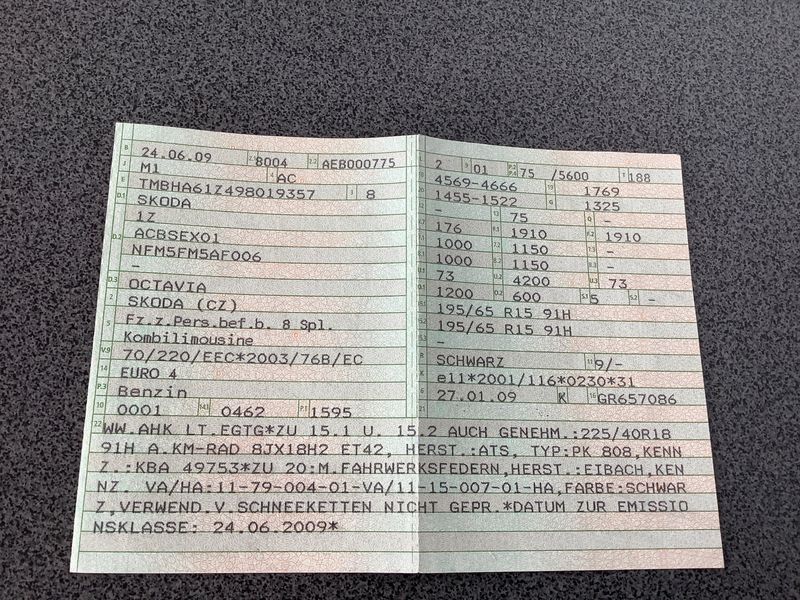 B 24.06.09 2.1 8004 2.2 AEB000775
J M1 4 AC
E TMBHA61Z498019357 3 8
D.1 SKODA
1Z
D.2 ACBSEX01
NFM5FM5AF006
-
D.3 OCTAVIA
2 SKODA (CZ)
5 Fz.z.Pers.bef.b. 8 Spl.
Kombilimousine
V.9 70/220/EEC*2003/76B/EC
14 EURO 4
P.3 Benzin
10 0001 14.1 0462 P.1 1595
L 2 9 01 P.2 P.4 75 /5600 T 188
18 4569-4666 19 1769
20 1455-1522 G 1325
12 - 13 75 Q -
V.7 176 F.1 1910 F.2 1910
7.1 1000 7.2 1150 7.3 -
8.1 1000 8.2 1150 8.3 -
U.1 73 U.2 4200 U.3 73
O.1 1200 O.2 600 S.1 5 S.2 -
15.1 195/65 R15 91H
15.2 195/65 R15 91H
15.3 -
R SCHWARZ 11 9/-
K e11*2001/116*0230*31
6 27.01.09 17 K 16 GR657086
21
22 WW.AHK LT.EGTG*ZU 15.1 U. 15.2 AUCH GENEHM.:225/40R18
91H A.KM-RAD 8JX18H2 ET42, HERST.:ATS, TYP:PK 808,KENN
Z.:KBA 49753*ZU 20:M.FAHRWERKSFEDERN,HERST.:EIBACH,KEN
NZ. VA/HA:11-79-004-01-VA/11-15-007-01-HA,FARBE:SCHWAR
Z,VERWEND.V.SCHNEEKETTEN NICHT GEPR.*DATUM ZUR EMISSIO
NSKLASSE: 24.06.2009*